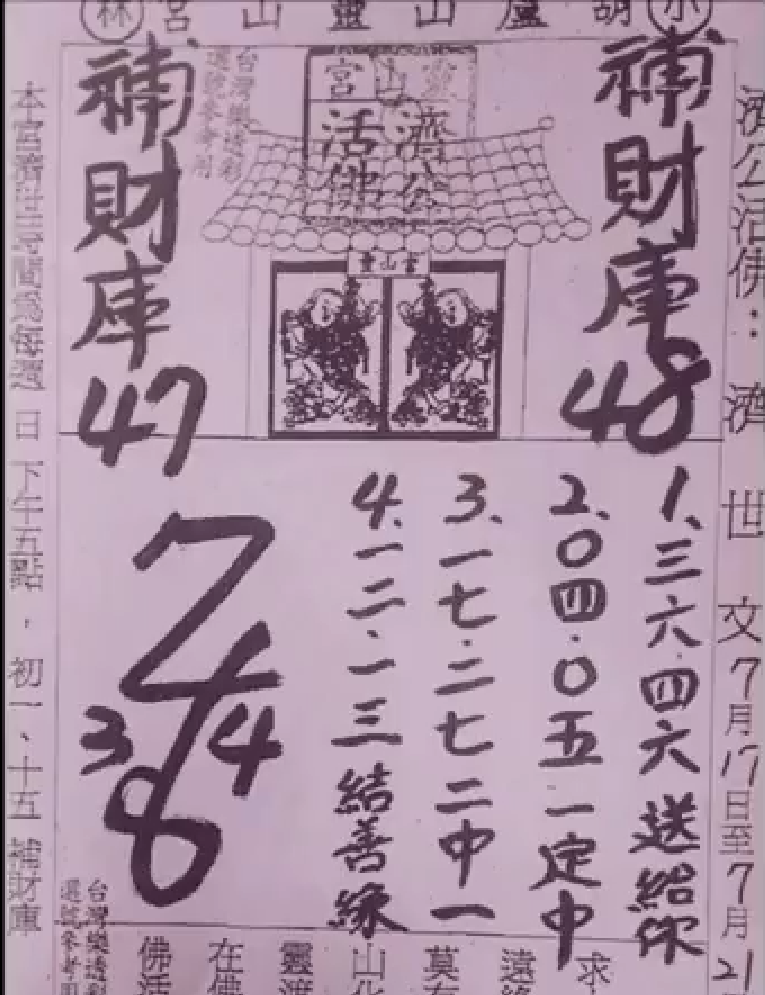 小葫蘆山靈山宮林
濟公活佛：濟世文7月17日至7月21
補財庫48
靈山宮
濟公
活佛
台灣樂透彩
選號參考用
補財庫47
1、三六.四六送給你
2、〇四.〇五一定中
3、一七.二七二中一
4、一二.一三結善緣
7
3 4
8
台灣樂透彩
選號參考用
求
遠
莫
山化
靈渡
在佛
佛活
本宮濟世時間為每週日下午五點，初一、十五補財庫